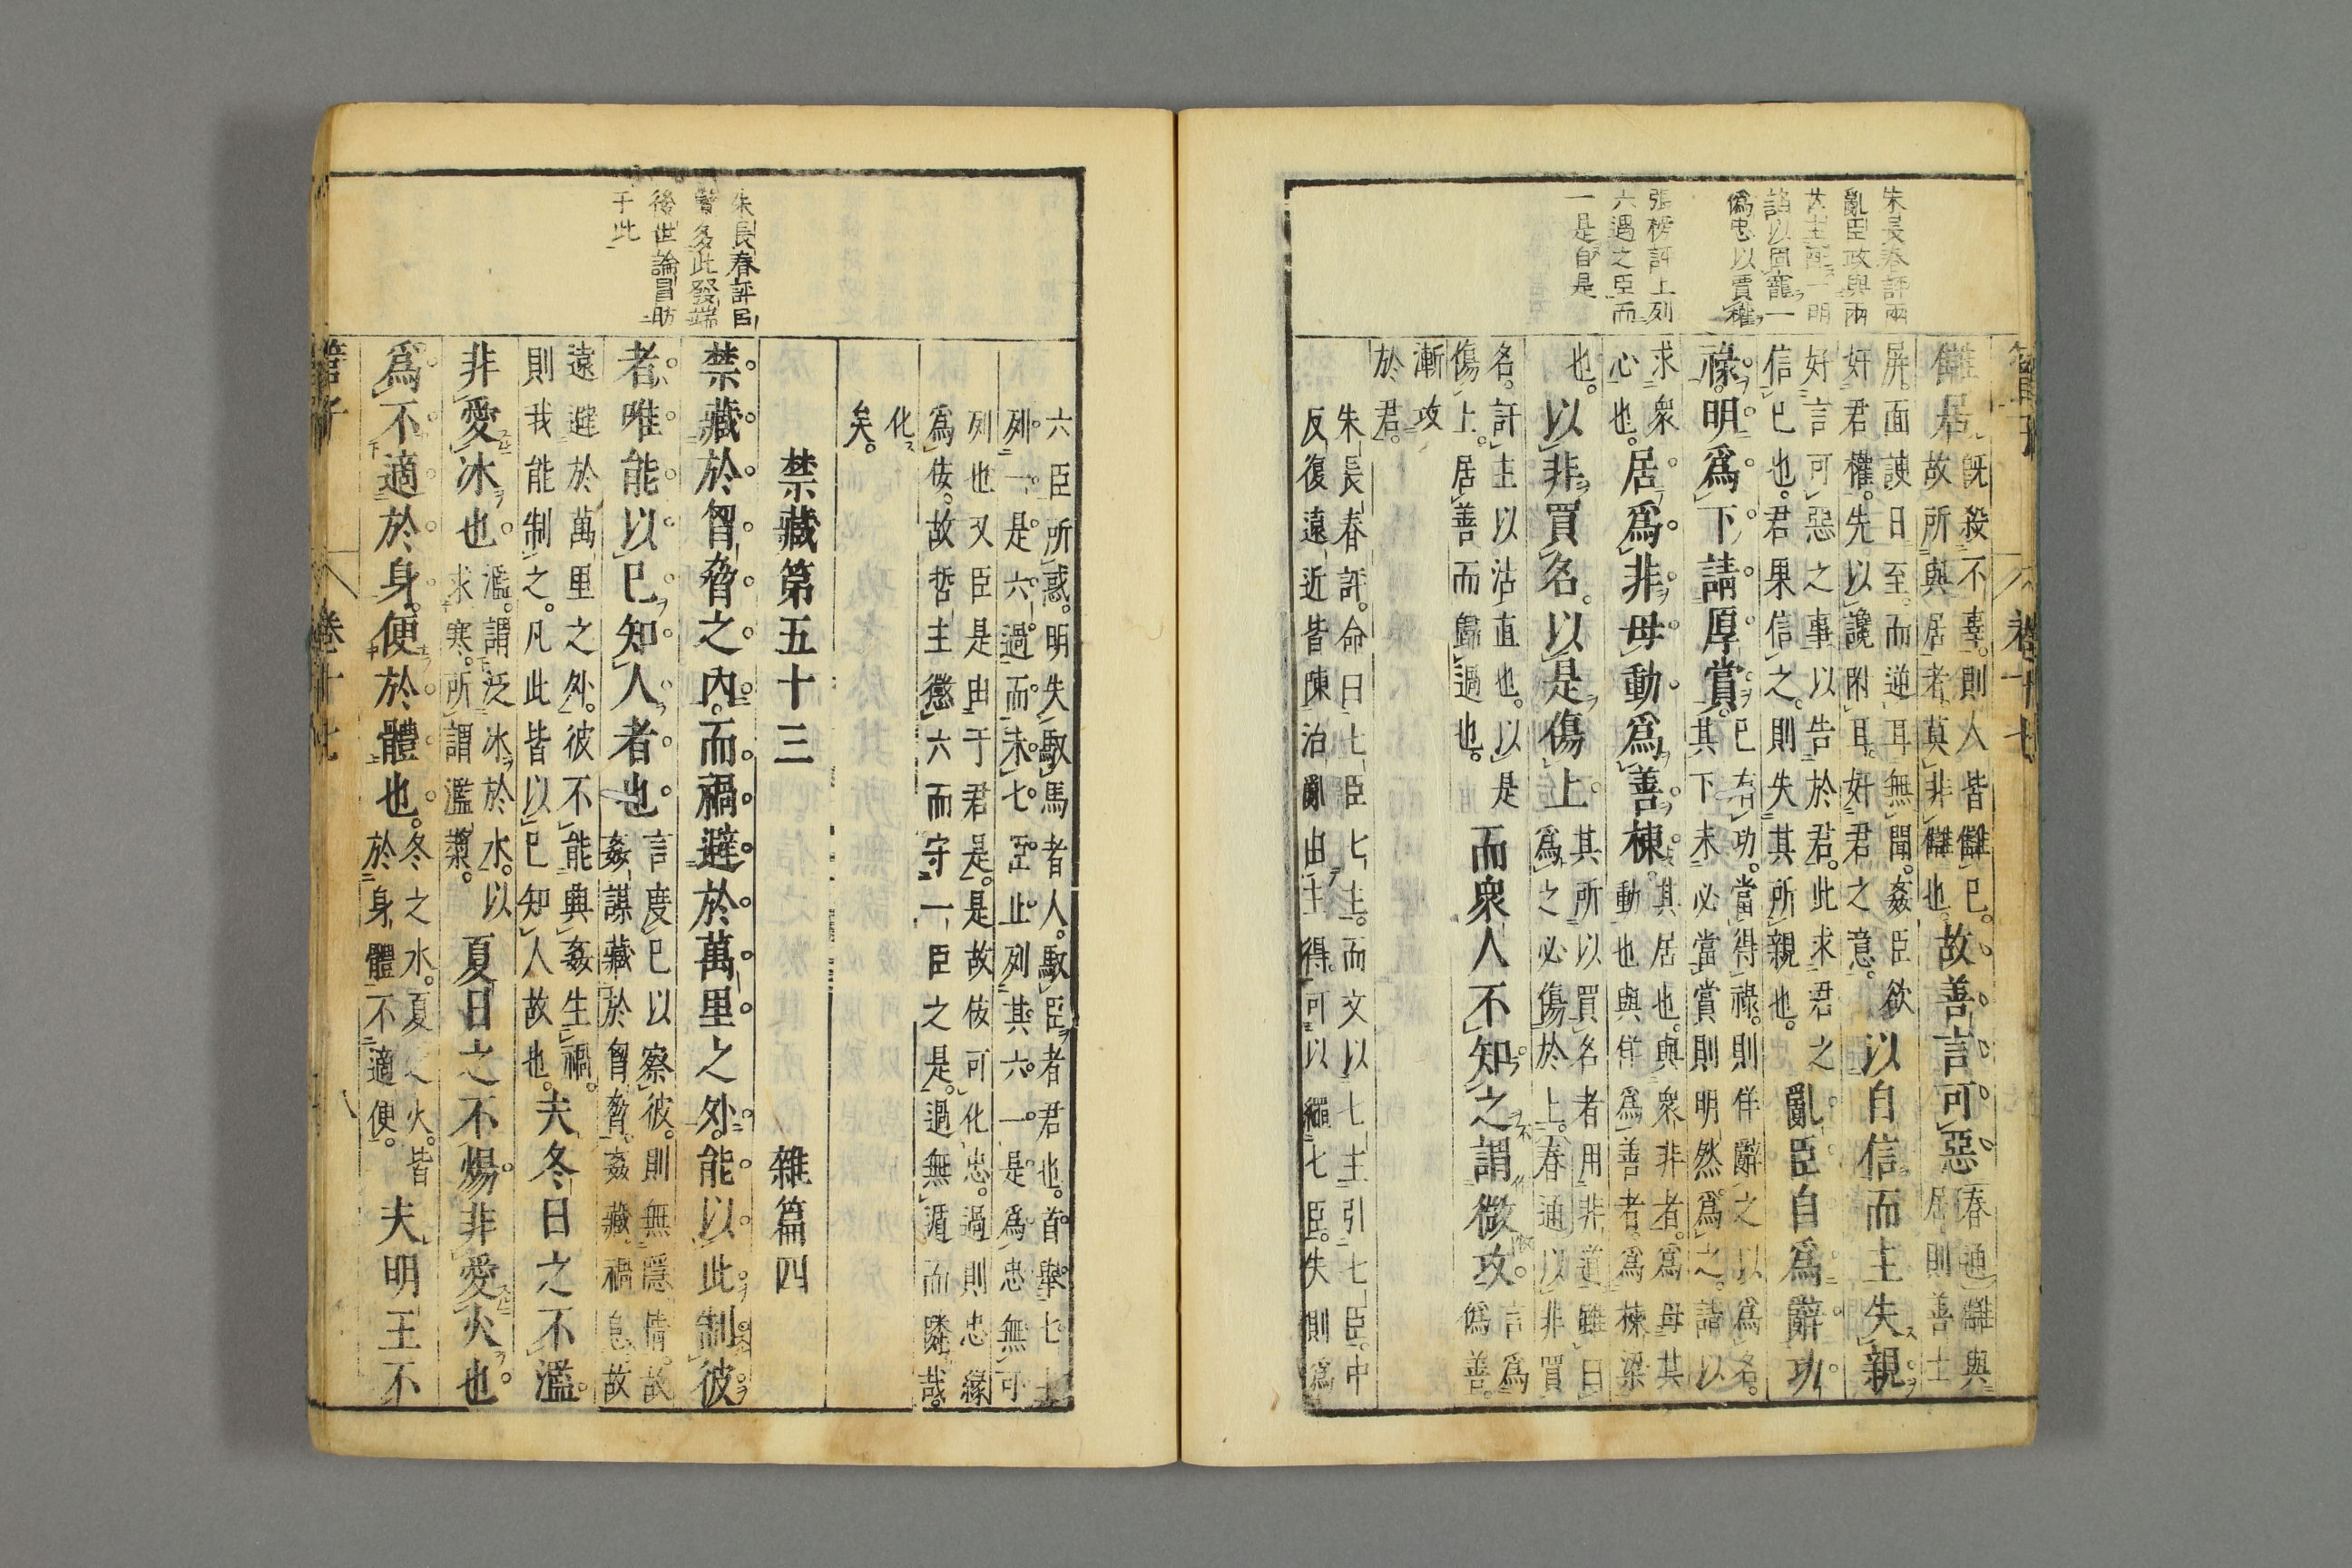 朱長春評兩
亂臣政與兩
其主配一明
諂以固寵一
僞忠以賈權
張榜評上列
六過之臣而
一是自是
管子
卷十七
讎既殺不辜則人皆讎已
讎居故所與居者莫非讎也
故善言可惡
春通讎與
居則善士
屏面諛日至而逆耳無聞姦臣欲
奸君權先以讒附耳奸君之意
以自信而主失親
好言可惡之事以告於君此求君之
信已也君果信之則失其所親也
亂臣自爲辭功
祿明爲下請厚賞
已有功當得祿則佯辭之以爲名
其下未必當賞則明然爲之請以
求衆
心也
居爲非母動爲善棟
其居也與衆非者爲母其
動也與佯爲善者爲棟梁
也以非買名以是傷上
其所以買名者用非道雖曰
爲之必傷於上春通以非買
名訐主以沽直也以是
傷上居善而歸過也
而衆人不知之謂微攻
言爲
僞善
漸攻
於君
朱長春評命曰七臣七主而文以七主引七臣中
反復遠近皆陳治亂由主得可以繩七臣失則爲
六臣所惑明失馭馬者人馭臣者君也首舉七主
列一是六過而未七臣止列其六一是爲忠無可
列也又臣是由于君是是故佞可化忠過則忠緣
爲佞故哲主懲六而守一臣之是過無遁而隣哉
化
矣
朱長春評呂
覽多此發端
後世論冒昉
于此
禁藏第五十三
雜篇四
禁藏於胷脅之內而禍避於萬里之外能以此制彼
者唯能以已知人者也
言度已以察彼則無隱情故
姦謀藏於胷脅姦藏禍息故
遠避於萬里之外彼不能興姦生禍
則我能制之凡此皆以已知人故也
夫冬日之不濫
非愛冰也
濫謂泛冰於水以
求寒所謂濫漿
夏日之不煬非愛火也
爲不適於身便於體也
冬之水夏之火皆
於身體不適便
夫明王不
管子
卷十七
八